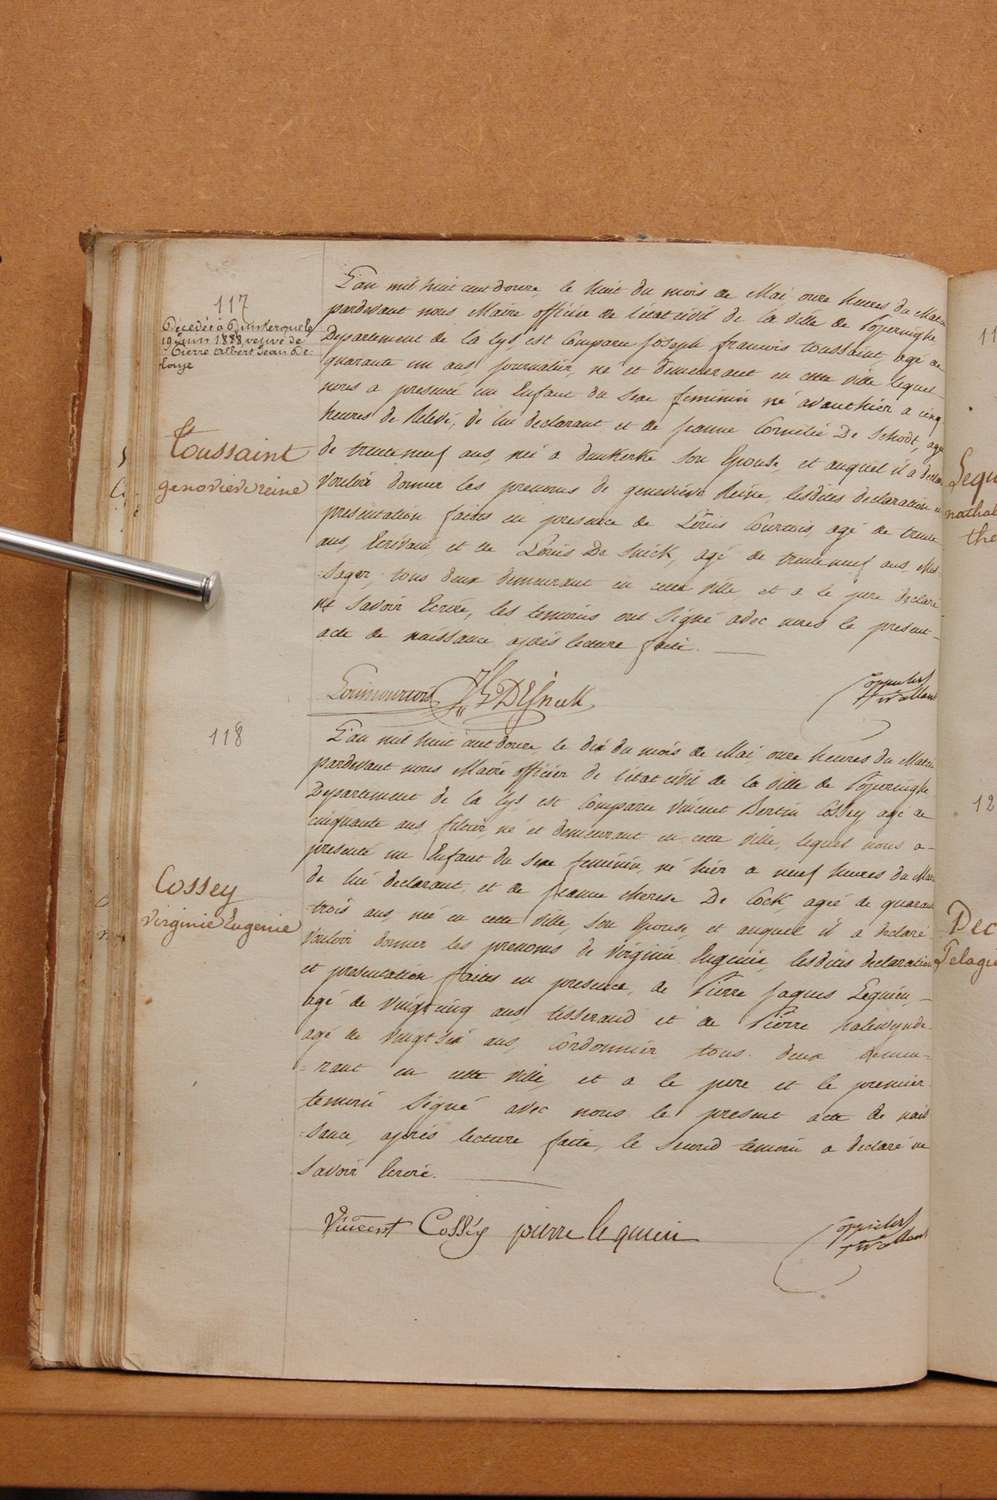 117
Décédée à Dunkerque le
10 Juin 1888 veuve de
Pierre Albert Jean De-
louye
Toussaint
genovieve reine
L'an mil huit cent douze, le huit du mois de Mai, onze heures du Matin
pardevant nous Maire officier de l'état civil de la ville de Poperinghe
Departement de la Lys est Comparu Joseph francois toussaint, agé de
quarante un ans journalier, né et demeurant en cette ville lequel
nous a presenté un Enfant du Sexe feminin né avanthier a cinq
heures de Relevé, de lui declarant et de Jeanne Cornelie De Schodt, agé
de trente neuf ans, née a dunkerke Son Epouse, et auquel il a declaré
Vouloir donner les prenoms de genevieve Reine, lesdites declaration et
presentation faites en presence de Louis Courtois, agé de trente
ans, Ecrivain et de Louis De Snick, agé de trente neuf ans Mes-
-sager, tous deux demeurant en cette ville et a le pere declaré
ne Savoir Ecrire, les temoins ont Signé avec nous le present
acte de naissance après lecture faite.
Louis courtois L. DESnick
118
Cossey
Virginie Eugenie
L'an mil huit cent douze, le dix du mois de Mai, onze heures du Matin
pardevant nous Maire officier de l'état civil de la ville de Poperinghe
Departement de la Lys est Comparu Vincent Bertin Cossey agé de
cinquante ans, filtier, né et demeurant en cette ville, lequel nous a
presenté un Enfant du Sexe feminin, né hier a neuf heures du Matin
de lui declarant, et de Jeanne therese De Cock, agée de quarante
trois ans, née en cette ville, Son Epouse et auquel il a declaré
Vouloir donner les prenoms de Virginie Eugenie, lesdites declaration
et presentation faites en presence, de Pierre Jaques Lequien,
agé de Vingt cinq ans, tisserand et de Pierre halewynde
agé de Vingt six ans, Cordonnier tous deux demeu-
-rant en cette ville, et a le pere et le premier
temoin Signé avec nous le present acte de nais
-sance, après lecture faite, le Second temoin a declaré ne
Savoir Ecrire.
Vincent Cossey pierre lequien
11
Lequ
nathal
the
12
Dec
Pelagie